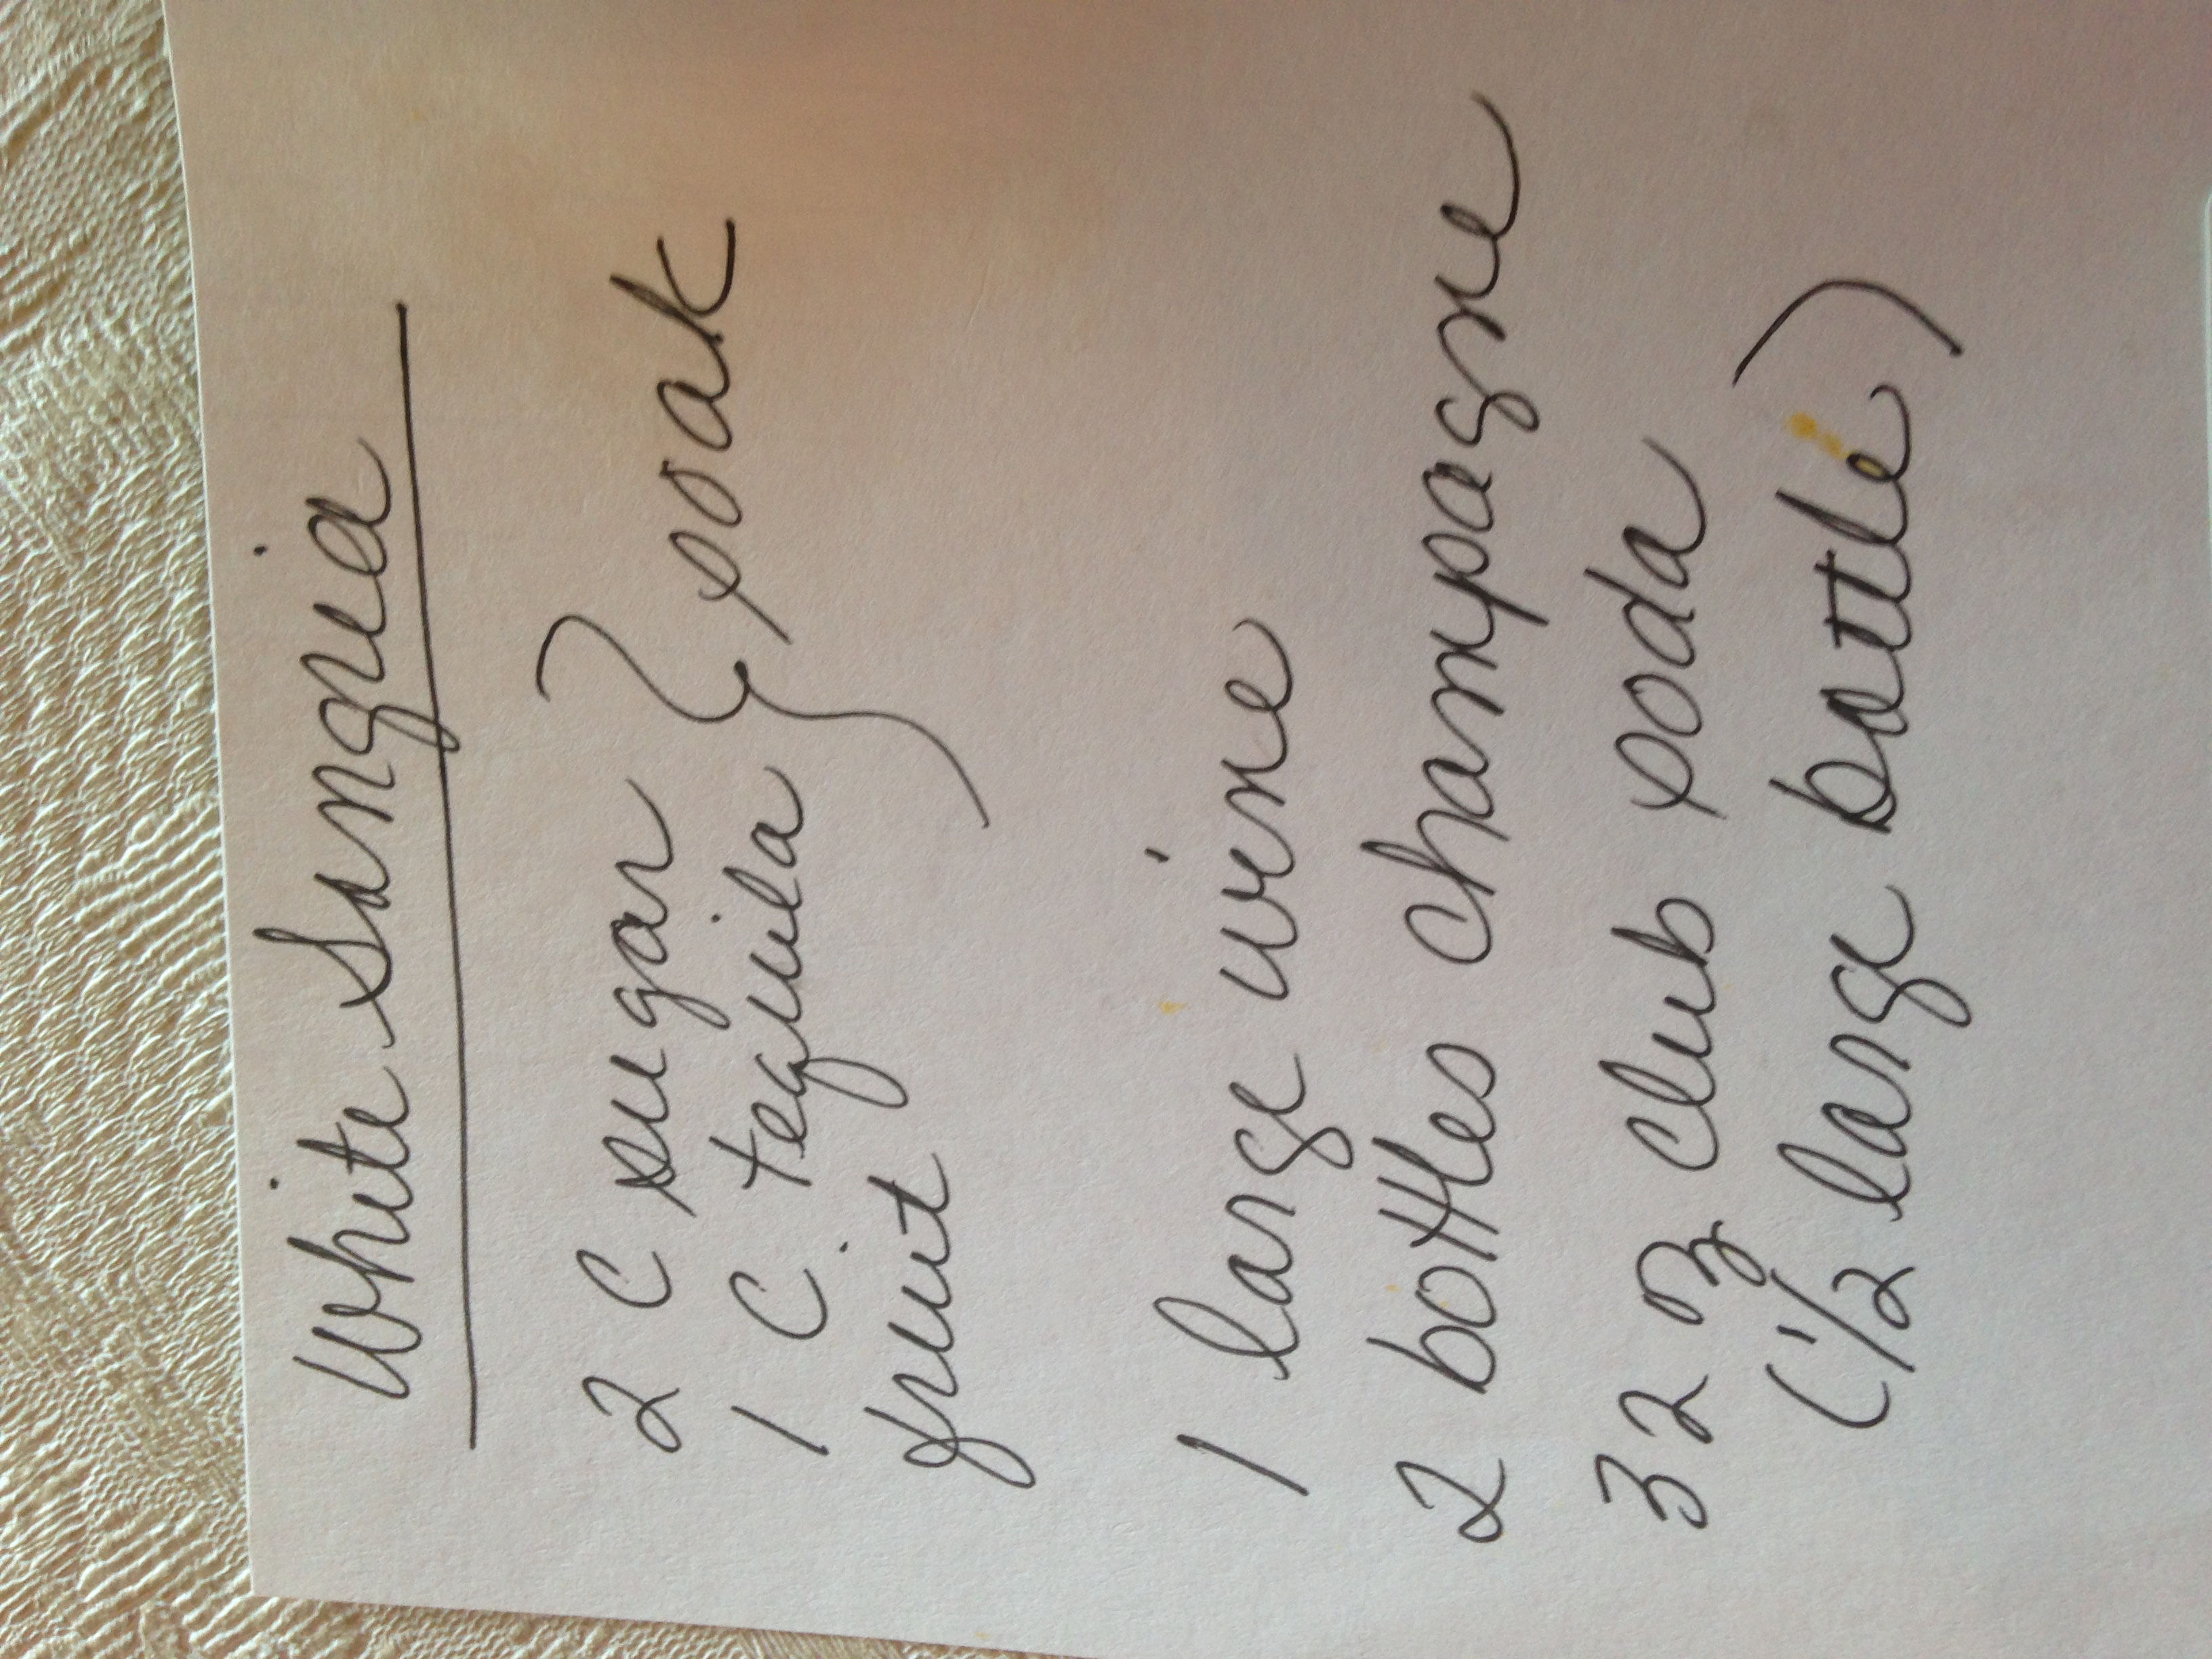 White Sangria
2 C sugar
1 C. tequila } soak
fruit
1 large wine
2 bottles champagne
32 oz club soda
(1/2 large bottle)